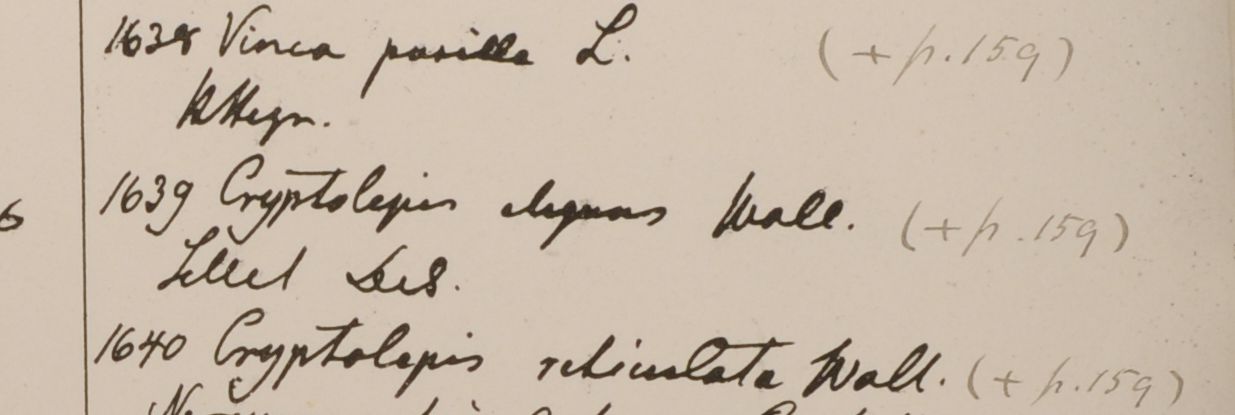 1638 Vinca pusilla L. (+ p. 159)
1639 Cryptolepis elegans Wall. (+ p. 159)
6
1640 Cryptolepis reticulata Wall. (+ p. 159)